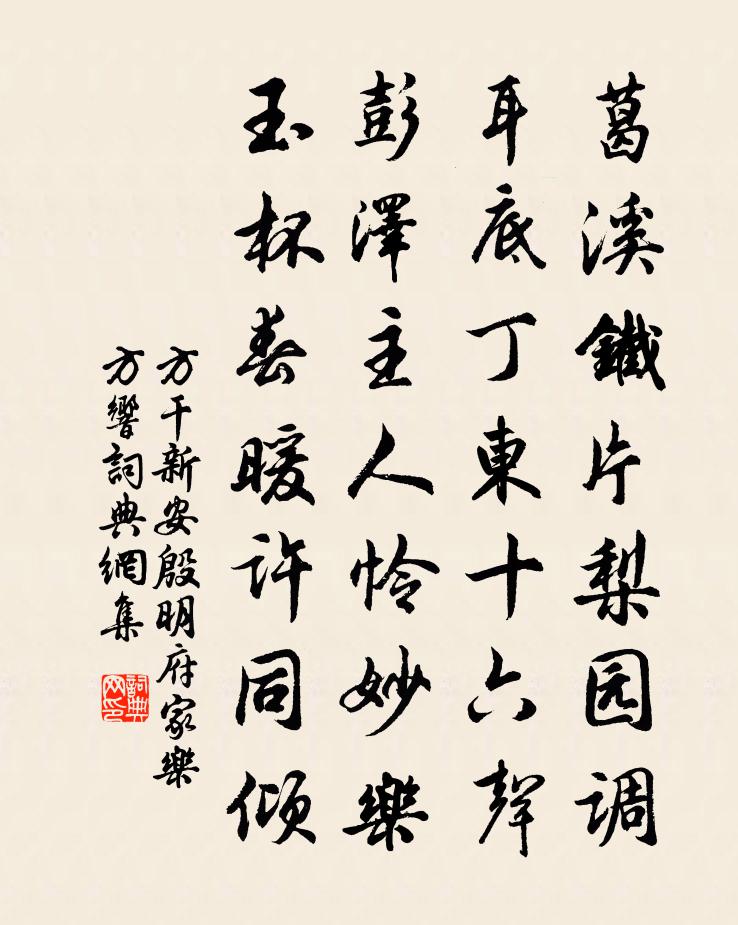 葛溪鐵片梨园调
耳底丁東十六聲
彭澤主人怜妙樂
玉杯春暖许同傾
方干新安殷明府家樂
方響詞典網集
詞典
网印